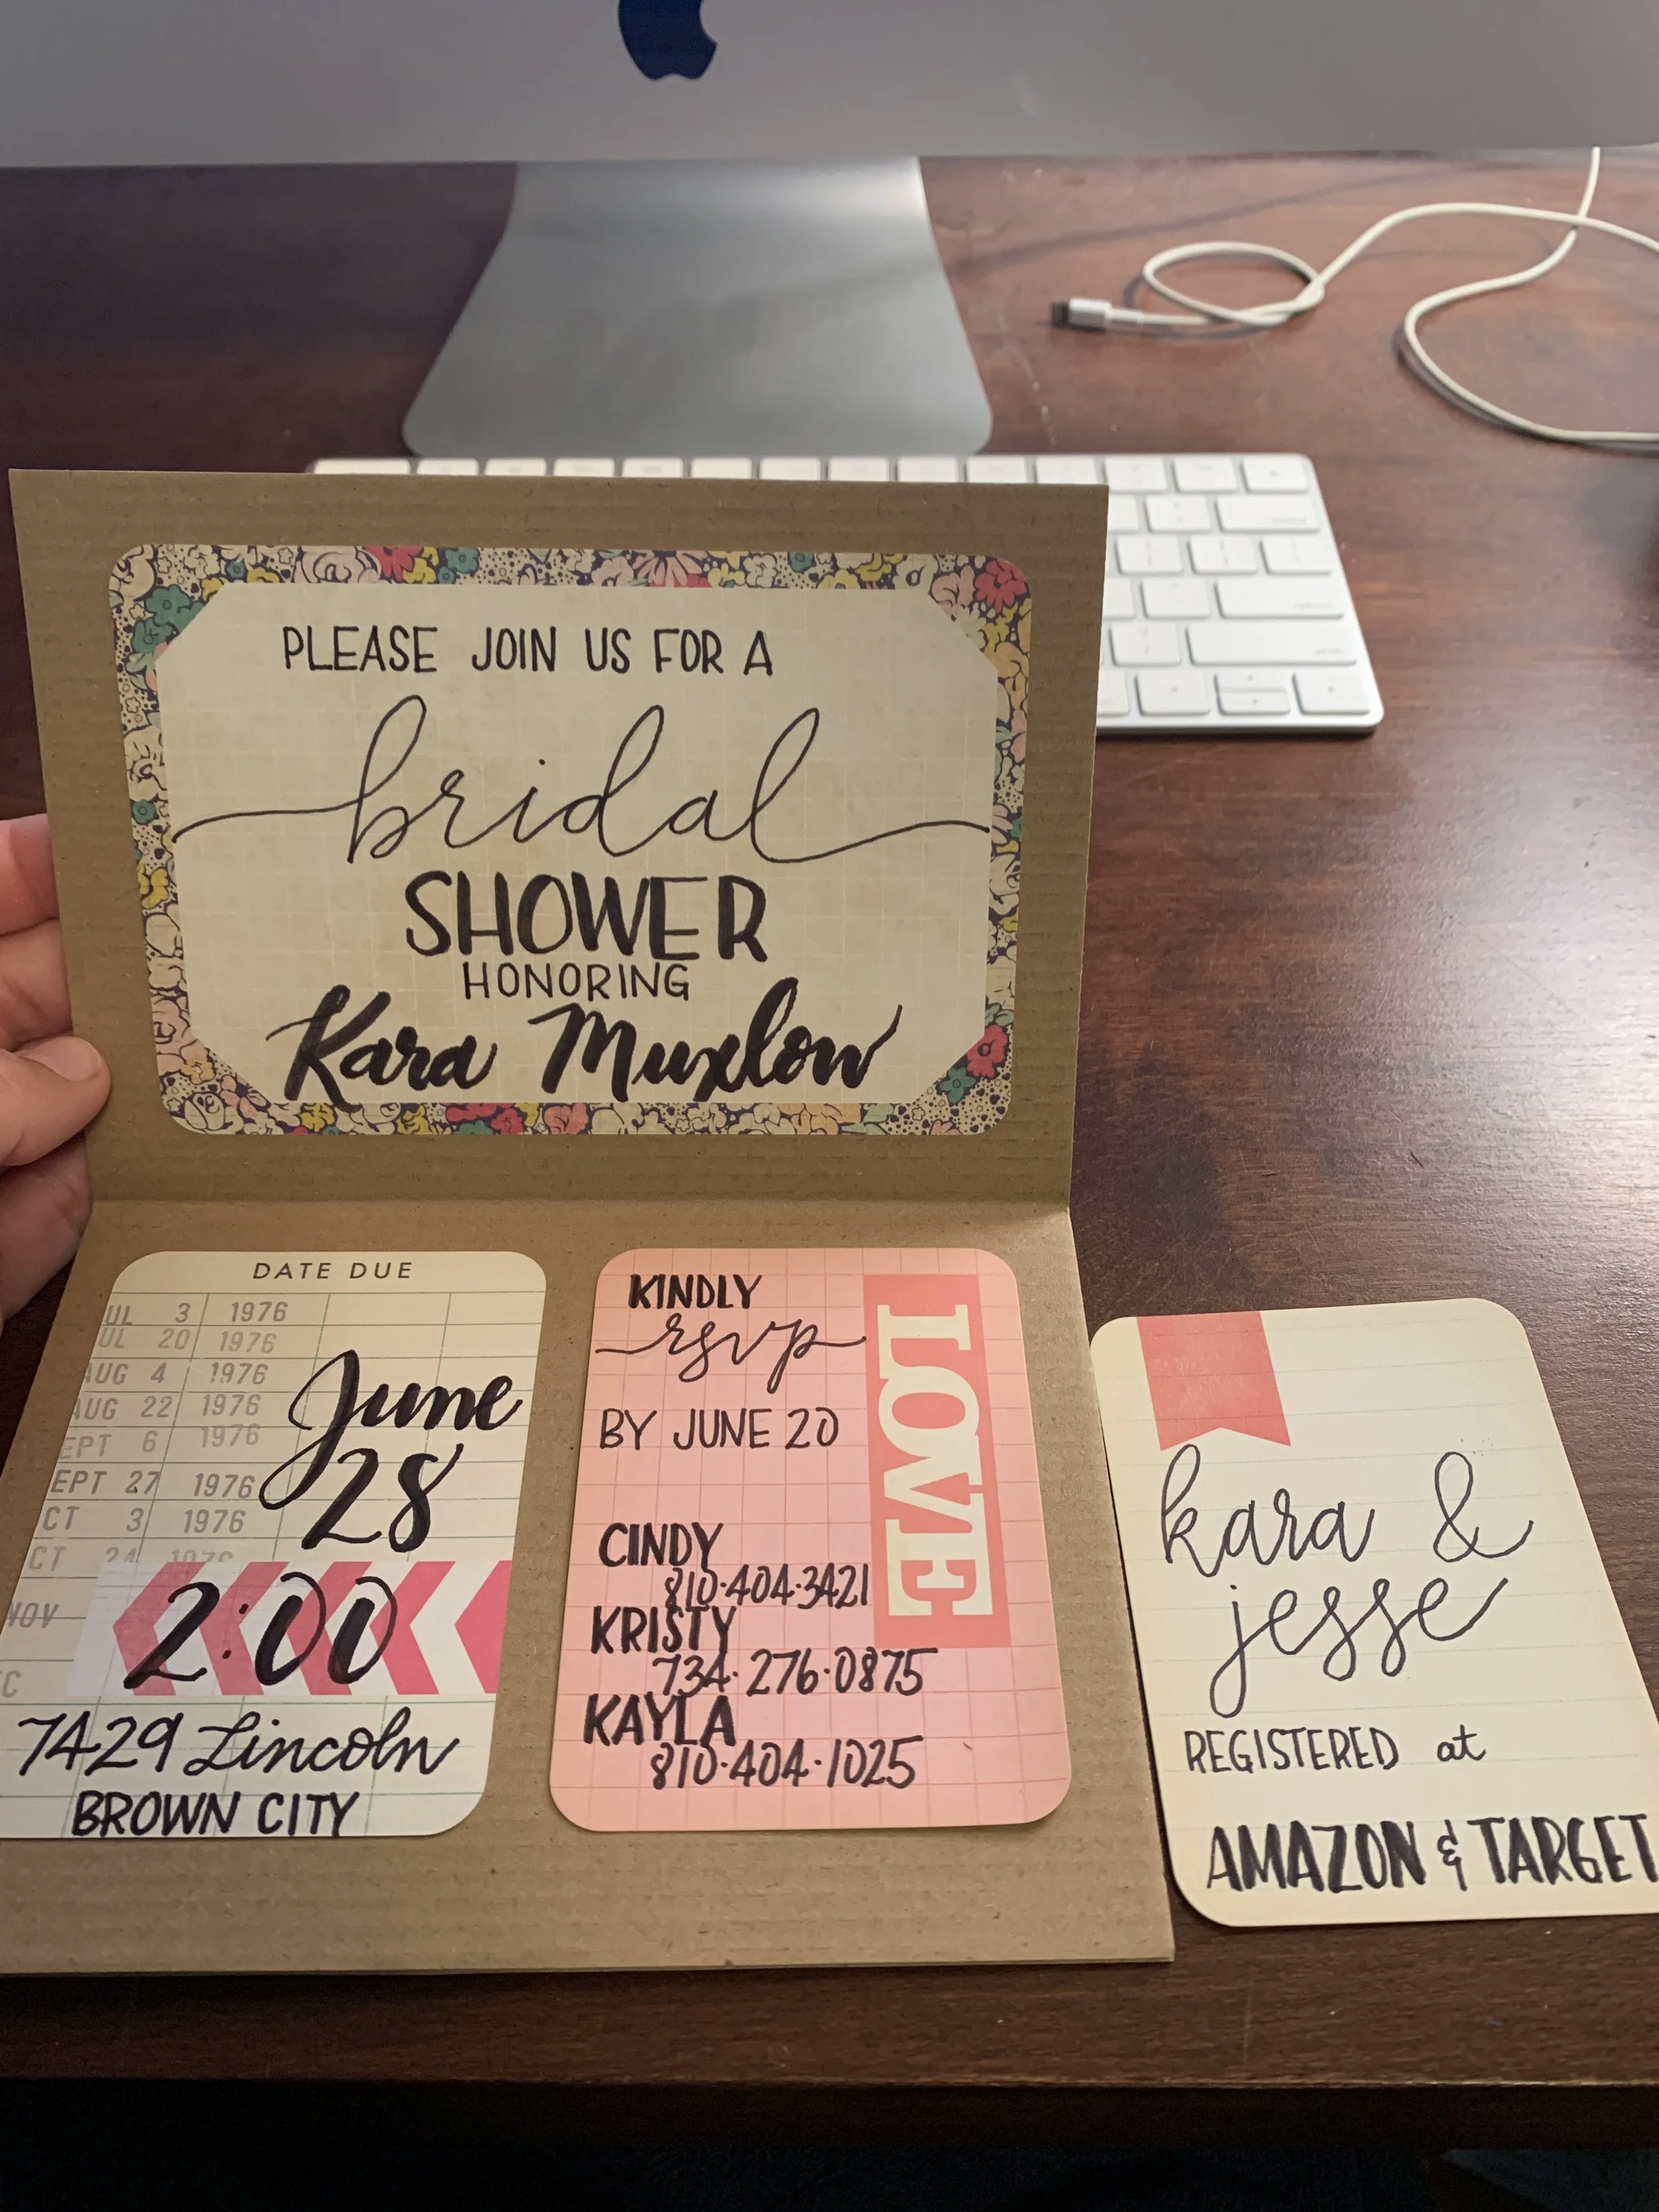 PLEASE JOIN US FOR A
bridal
SHOWER
HONORING
Kara Muxlow
DATE DUE
UL 3 1976
UL 20 1976
AUG 4 1976
AUG 22 1976
EPT 6 1976
EPT 27 1976
CT 3 1976
CT 24 1976
NOV
C
June
28
2:00
7429 Lincoln
BROWN CITY
KINDLY
rsvp
BY JUNE 20
LOVE
CINDY
810·404·3421
KRISTY
734·276·0875
KAYLA
810·404·1025
kara &
jesse
REGISTERED at
AMAZON & TARGET